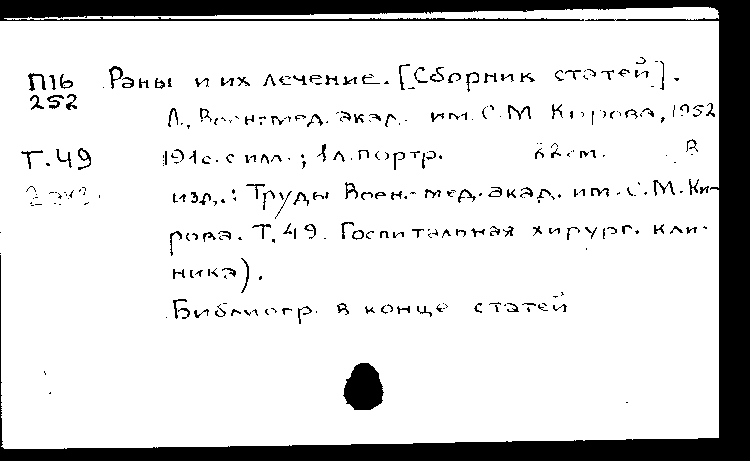 П16 Раны и их лечение. [Сборник статей].
252 Л., Воен.-мед. акад. им. С.М Кирова, 1952
Т.49 191с. с илл.; 1л. портр. 22 см. В
2 экз. изд.: Труды Воен.-мед. акад. им. С.М.Ки-
рова. Т.49. Госпитальная хирург. кли-
ника).
Библиогр. в конце статей